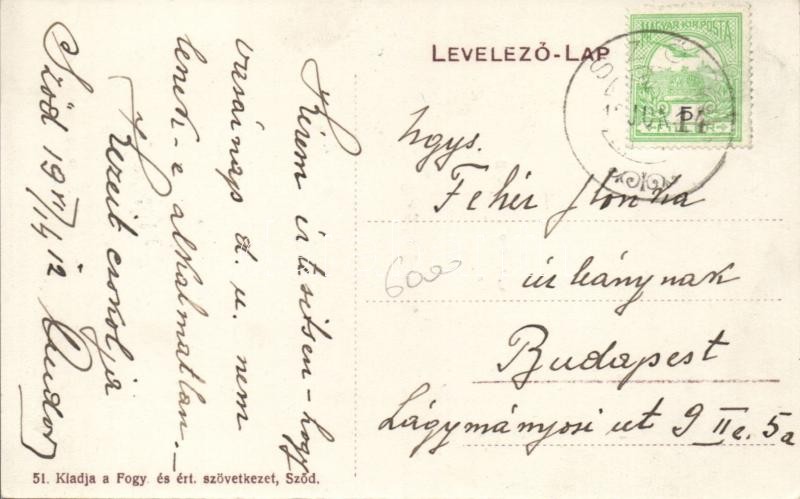 LEVELEZŐ-LAP
MAGYAR KIR. POSTA
5
Kérem értesitsen - hogy
vasárnap d. u. nem
lenne-e alkalmatlan. -
Kezeit csókolja
Sződ 19 VI/14 12 Andor
Ngys.
Fehér Ilonka
úrleánynak
Budapest
Lágymányosi ut 9 II e. 5a
600
51. Kiadja a Fogy. és ért. szövetkezet, Sződ.